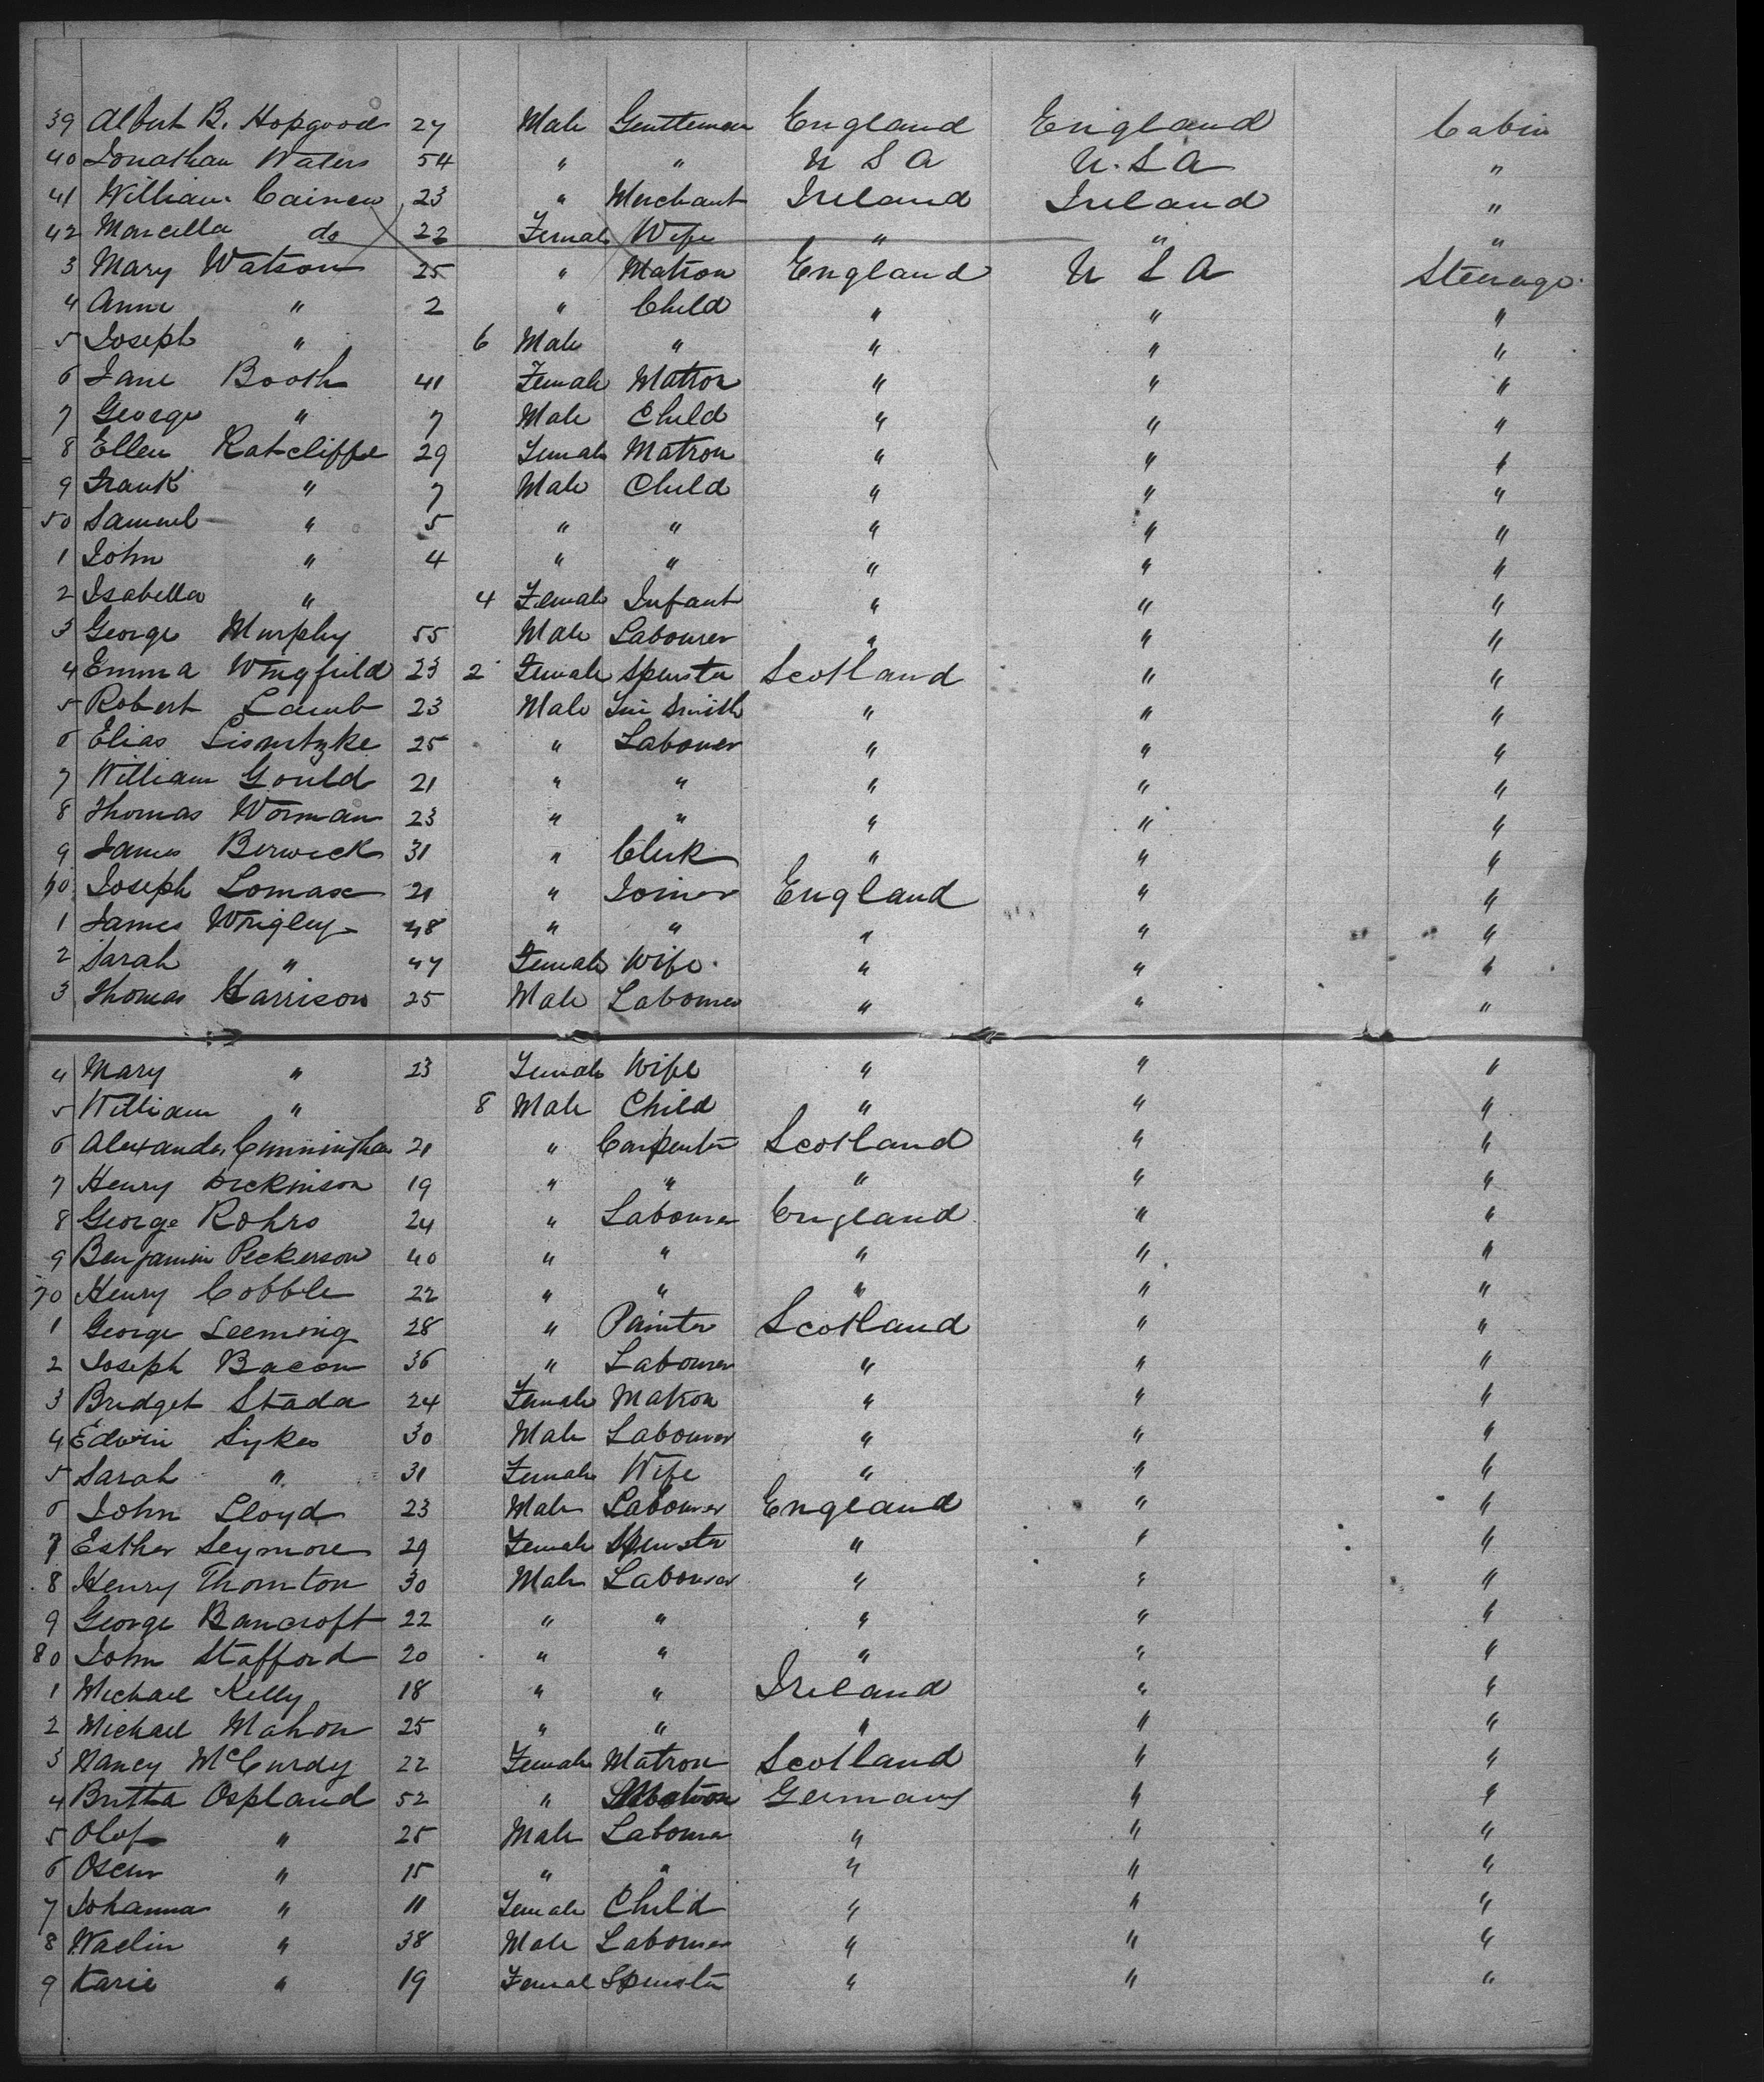 39 Albert B. Hopgood 27 Male Gentleman England England Cabin
40 Jonathan Waters 54 " " U S A U.S.A "
41 William Cairnes 23 " Merchant Ireland Ireland "
42 Marcella do 22 Female Wife " " "
3 Mary Watson 25 " Matron England U S A Steerage
4 Anne " 2 " Child " " "
5 Joseph " 6 Male " " " "
6 Jane Booth 41 Female Matron " " "
7 George " 7 Male Child " " "
8 Ellen Ratcliffe 29 Female Matron " " "
9 Frank " 7 Male Child " " "
50 Samuel " 5 " " " " "
1 John " 4 " " " " "
2 Isabella " 4 Female Infant " " "
3 George Murphy 55 Male Labourer " " "
4 Emma Wingfield 23 2 Female Spinster Scotland " "
5 Robert Lamb 23 Male Tin Smith " " "
6 Elias 25 " Labourer " " "
7 William Gould 21 " " " " "
8 Thomas Worman 23 " " " " "
9 James Berwick 31 " Clerk " " "
60 Joseph Lomax 21 " Joiner England " "
1 James Wrigley 48 " " " " "
2 Sarah " 47 Female Wife " " "
3 Thomas Harrison 25 Male Labourer " " "
4 Mary " 23 Female Wife " " "
5 William " 8 Male Child " " "
6 Alexander Cunningham 21 " Carpenter Scotland " "
7 Henry Dickinson 19 " " " " "
8 George Rohrs 24 " Labourer England " "
9 Benjamin Peckerson 40 " " " " "
70 Henry Cobble 22 " " " " "
1 George Leeming 28 " Painter Scotland " "
2 Joseph Bacon 36 " Labourer " " "
3 Bridget Stada 24 Female Matron " " "
4 Edwin Sykes 30 Male Labourer " " "
5 Sarah " 31 Female Wife " " "
6 John Lloyd 23 Male Labourer England " "
7 Esther Seymore 29 Female Spinster " " "
8 Henry Thornton 30 Male Labourer " " "
9 George Bancroft 22 " " " " "
80 John Stafford 20 " " " " "
1 Michael Kelly 18 " " Ireland " "
2 Michael Mahon 25 " " " " "
3 Nancy McCurdy 22 Female Matron Scotland " "
4 Britta Ospland 52 " Matron Germany " "
5 Olof " 25 Male Labourer " " "
6 Oscar " 15 " " " " "
7 Johanna " 11 Female Child " " "
8 " 38 Male Labourer " " "
9 Karie " 19 Female Spinster " " "